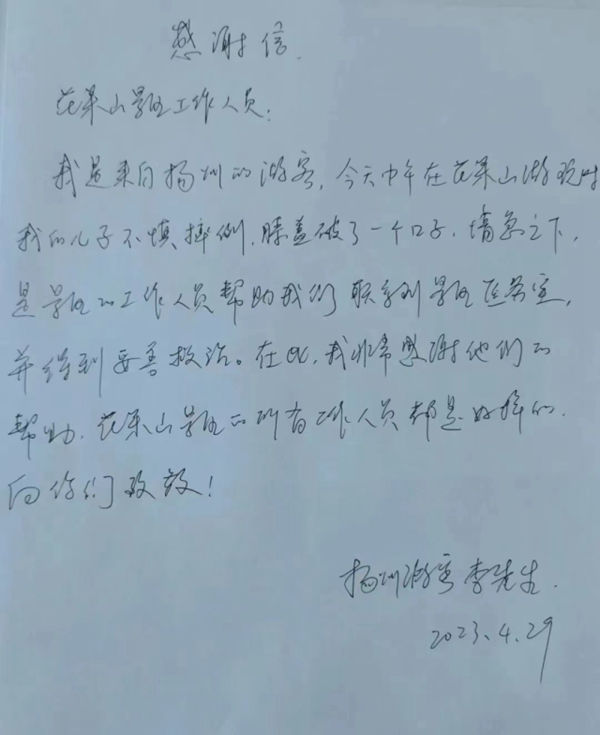 感谢信.
花果山景区工作人员:
我是来自扬州的游客, 今天中午在花果山游玩时
我的儿子不慎摔倒, 膝盖破了一个口子, 情急之下,
是景区的工作人员帮助我们联系到景区医务室,
并得到妥善救治。在此, 我非常感谢他们的
帮助. 花果山景区的所有工作人员都是好样的.
向你们致敬!
扬州游客 李先生.
2023.4.29